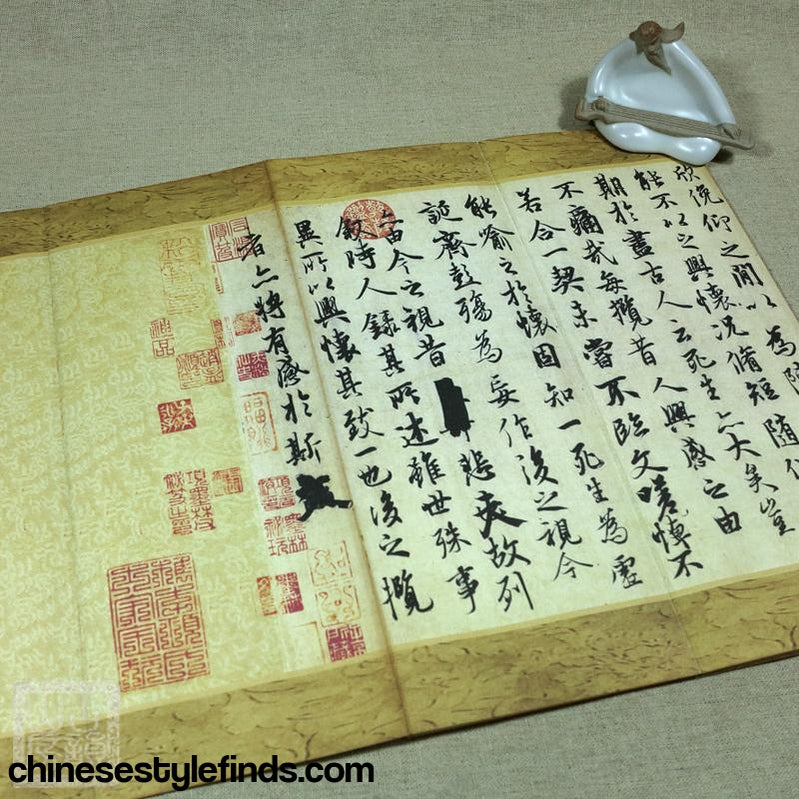 欣俛仰之閒以為陳
能不以之興懷況脩短随化
期於盡古人云死生亦大矣豈
不痛哉每攬昔人興感之由
若合一契未嘗不臨文嗟悼不
能喻之於懷固知一死生為虛
誕齊彭殤為妄作後之視今
亦由今之視昔悲夫故列
敘時人錄其所述雖世殊事
異所以興懷其致一也後之攬
者亦將有感於斯文
神品
chinesestylefinds.com